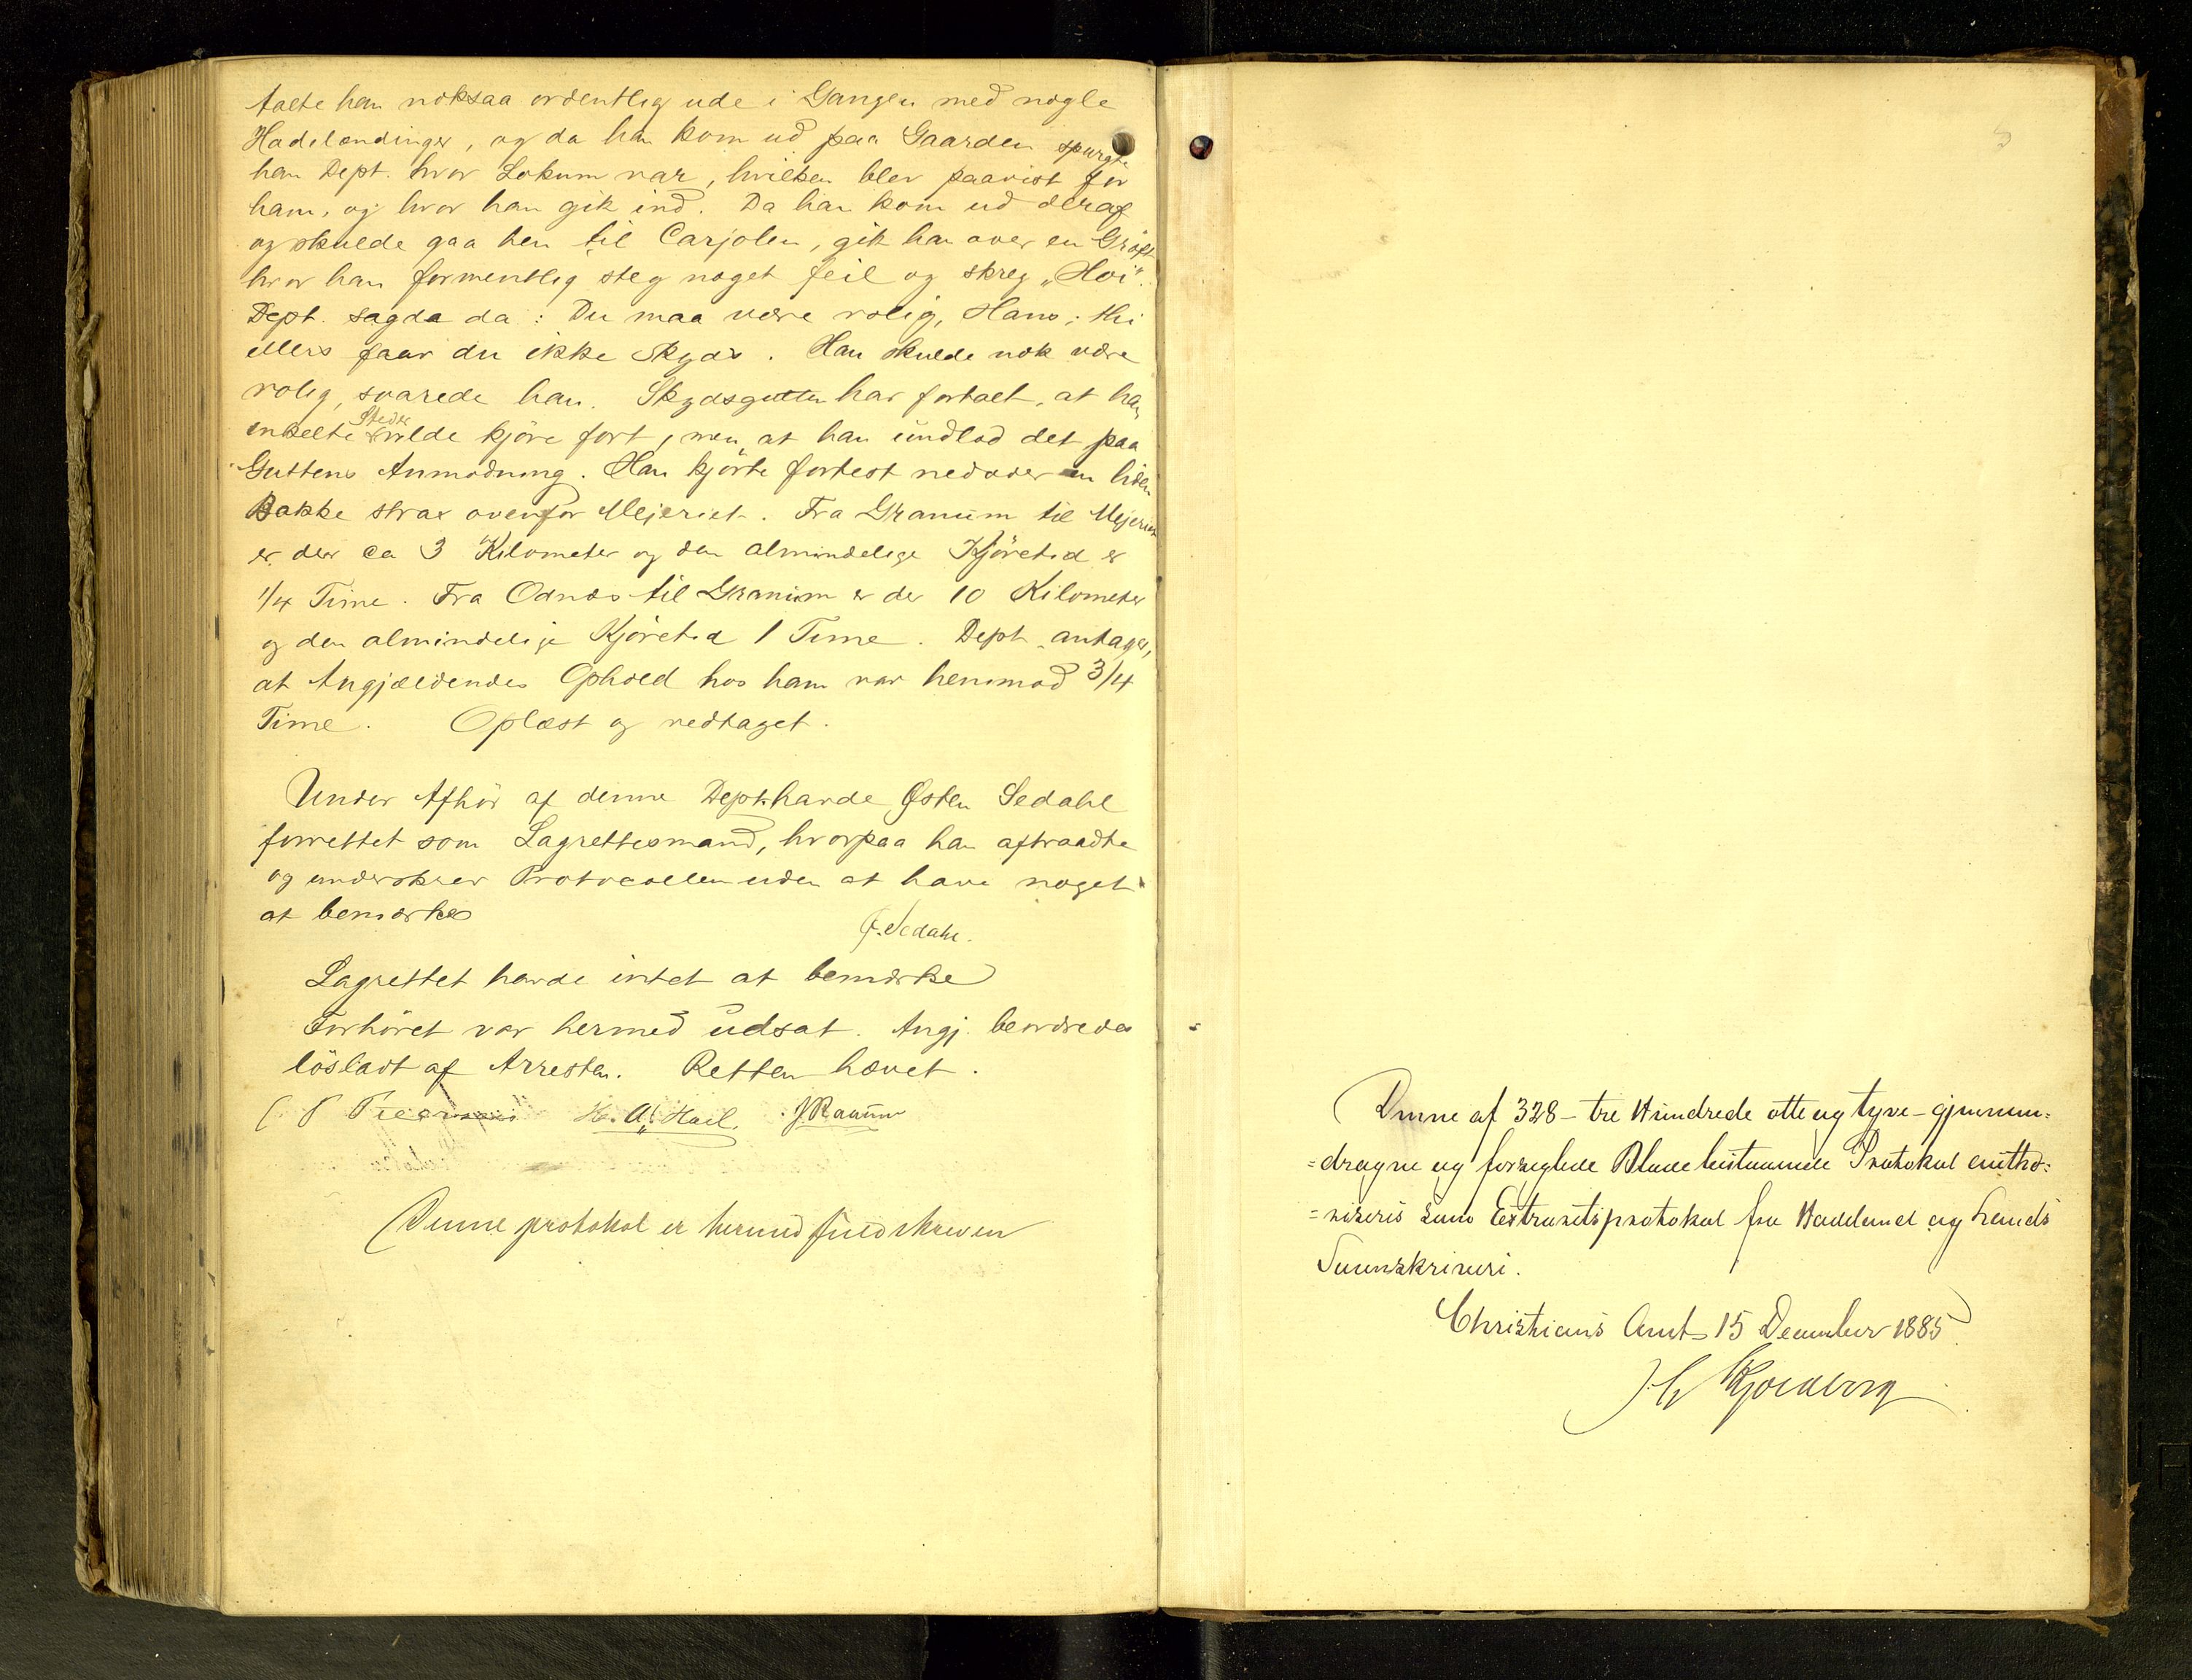 talte han noksaa ordentlig ude i Gangen med nogle
Hadelændinger, og da han kom ud paa Gaarden spurgte
han Dept. hvor Lokum var, hvilken blev paavist for
ham, og hvor han gik ind. Da han kom ud deraf
og skulde gaa hen til Carjolen, gik han over en Grøft
hvor han formentlig steg noget feil og skreg „Hoi".
Dept. sagde da: Du maa være rolig, Hans; thi
ellers faar du ikke Skyds. Han skulde nok være
rolig, svarede han. Skydsgutten har fortalt, at han
enkelte Steder vilde kjøre fort, men at han undlod det paa
Guttens Anmodning. Han kjørte fortest nedover en liden
Bakke strax ovenfor Mejeriet. Fra Granum til Mejeriet
er der ca 3 Kilometer og den almindelige Kjøretid er
1/4 Time. Fra Odnæs til Granum er der 10 Kilometer
og den almindelige Kjøretid 1 Time. Dept. antager,
at Angjældendes Ophold hos ham var henimod 3/4
Time. Oplæst og vedtaget.
Under Afhør af denne Dept. havde Østen Sedahl
forrettet som Lagrettesmand, hvorpaa han aftraadte
og underskrev Protocollen uden at have noget
at bemærke
Ø. Sedahl.
Lagrettet havde intet at bemærke
Forhøret var hermed udsat. Angj. beordredes
løsladt af Arresten. Retten hævet.
H. A. Hoel. J Raanum
Denne protokol er hermed fuldskreven
Denne af 328 - tre Hundrede otte og tyve - gjennem-
=dragne og forseglede Blade bestaaende Protokol autho-
=riseres som Extraretsprotokol for Hadeland og Lands
Sorenskriveri.
Christians Amt 15 December 1885.